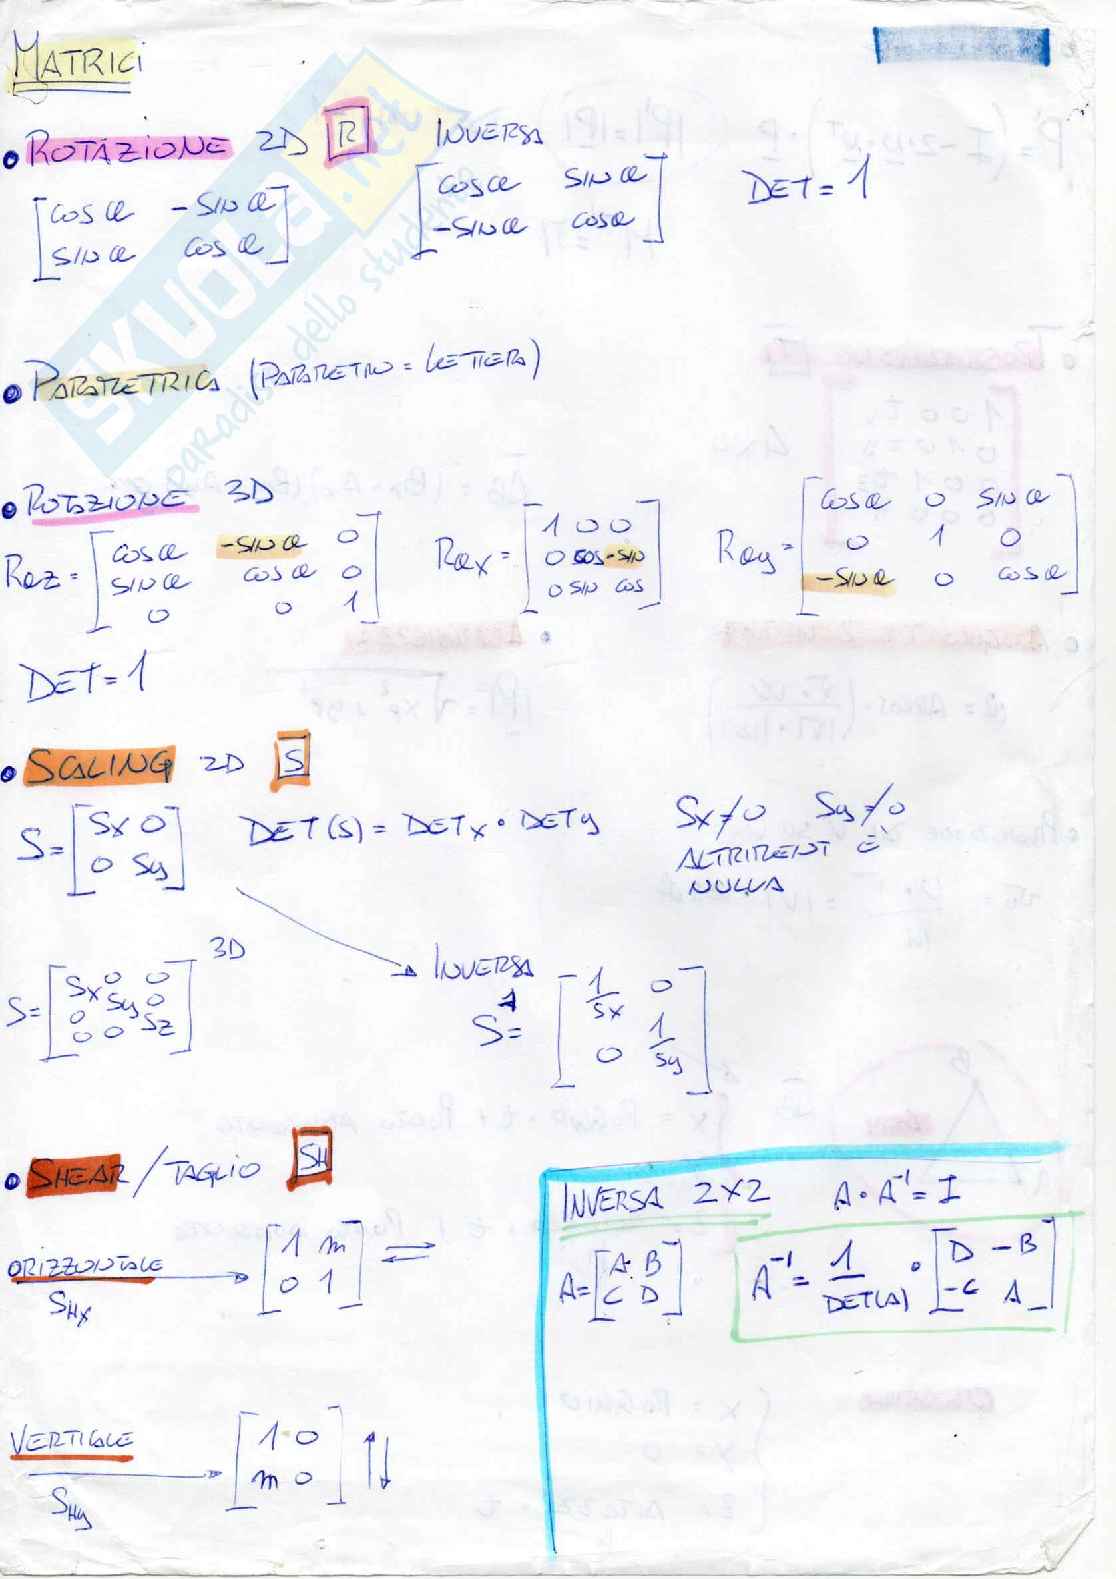 MATRICI
• ROTAZIONE 2D R INVERSA
[cos α -SIN α
SIN α cos α]
[cos α SIN α
-SIN α cos α]
DET = 1
• PARAMETRICA (PARAMETRO = LETTERA)
• ROTAZIONE 3D
Rαz = [cos α -SIN α 0
SIN α cos α 0
0 0 1]
Rαx = [1 0 0
0 cos -SIN
0 SIN cos]
Rαy = [cos α 0 SIN α
0 1 0
-SIN α 0 cos α]
DET = 1
• SCALING 2D S
S = [Sx 0
0 Sy]
DET(S) = DETx • DETy
Sx ≠ 0 Sy ≠ 0
ALTRIMENT È
NULLA
3D
S = [Sx 0 0
0 Sy 0
0 0 Sz]
INVERSA
S⁻¹ = [1/Sx 0
0 1/Sy]
• SHEAR / TAGLIO SH
ORIZZONTALE
SHx
[1 m
0 1]
VERTICALE
SHy
[1 0
m 0]
INVERSA 2X2 A • A⁻¹ = I
A = [A B
C D]
A⁻¹ = 1/DET(A) • [D -B
-C A]
SKUOLA.net
paradiso dello studente